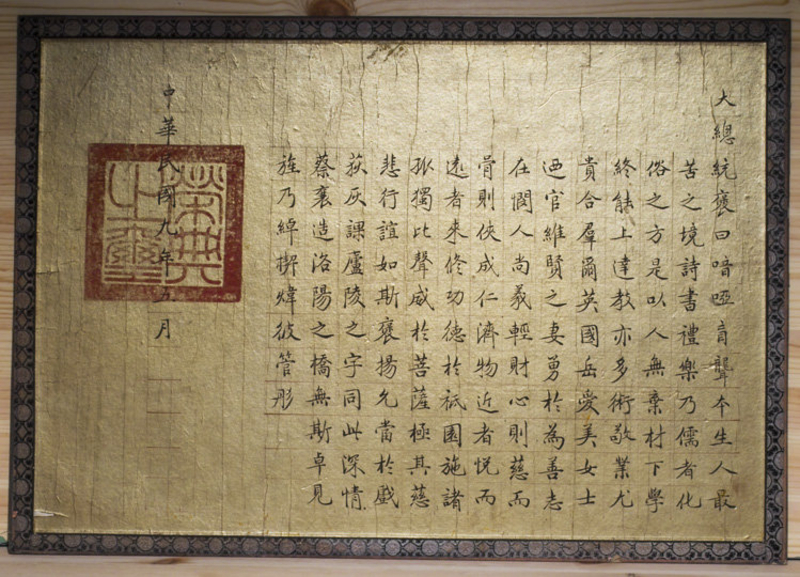 大總統褒曰喑啞盲聾本生人最
苦之境詩書禮樂乃儒者化
俗之方是以人無棄材下學
終能上達教亦多術敬業尤
貴合羣爾英國岳愛美女士
迺官維賢之妻勇於為善志
在憫人尚義輕財心則慈而
骨則俠成仁濟物近者悅而
遠者來修功德於祇園施諸
孤獨比聲威於菩薩極其慈
悲行誼如斯褒揚允當於戲
荻灰課廬陵之字同此深情
蔡襄造洛陽之橋無斯卓見
旌乃綽楔煒彼管彤
中華民國九年五月
榮典之璽